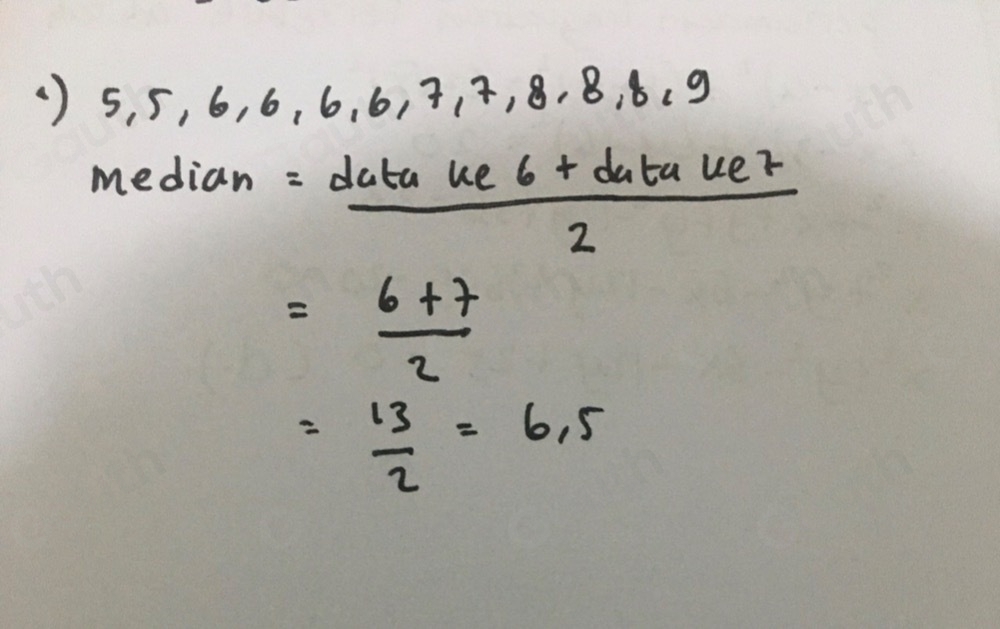 •) 5,5, 6,6, 6,6, 7,7, 8, 8, 8, 9
median = data ke 6 + data ke 7
2
= 6 + 7
2
= 13 = 6,5
2